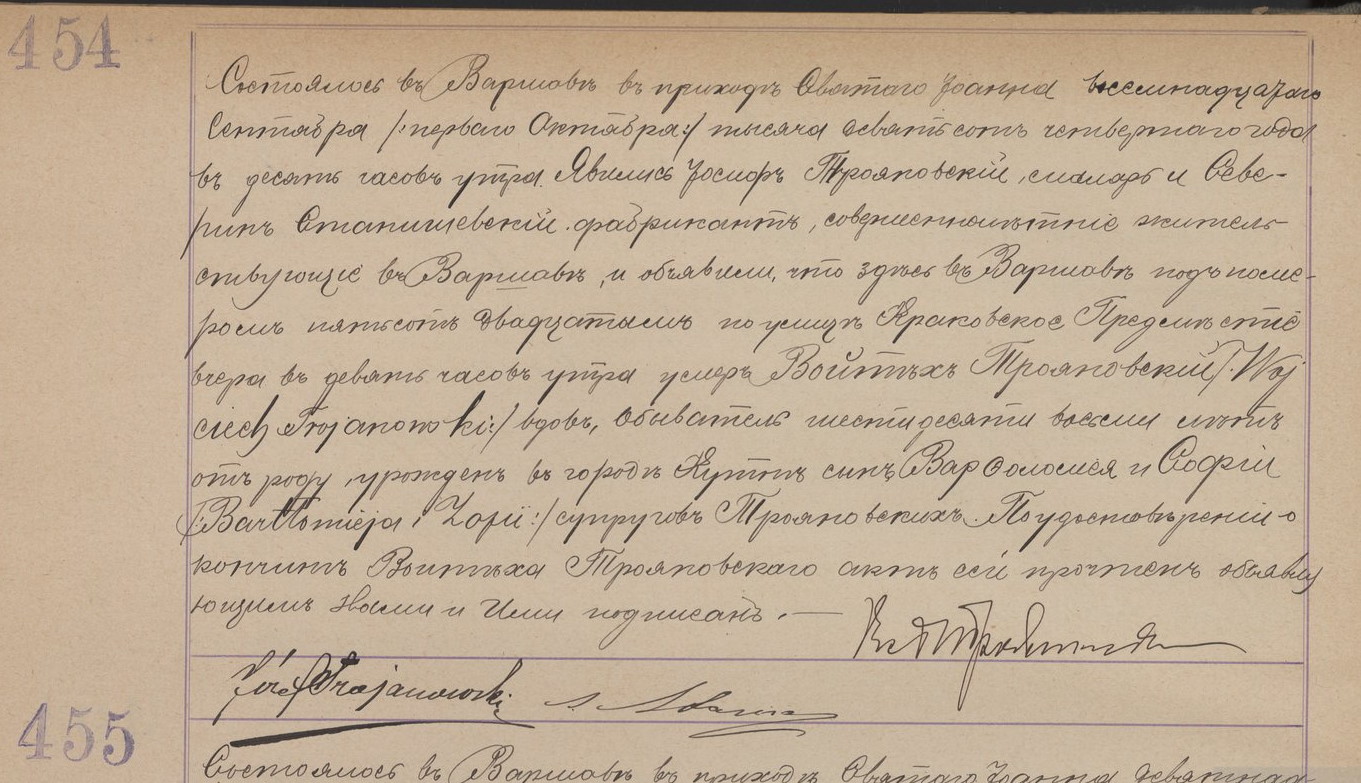 454
Состоялось въ Варшавѣ въ приходѣ Святаго Іоанна восемнадцатаго
Сентября /:перваго Октября:/ тысяча девятьсотъ четвертаго года
въ десять часовъ утра. Явились Іосифъ Трояновскій, столяръ и Севе-
ринъ Станишевскій фабрикантъ, совершеннолѣтніе житель-
ствующіе въ Варшавѣ, и объявили, что здѣсь въ Варшавѣ подъ номе-
ромъ пятьсотъ двадцатымъ по улицѣ Краковское Предмѣстіе
вчера въ девять часовъ утра умеръ Войтѣхъ Трояновскій /:Woj
ciech Trojanowski:/ вдовъ, обыватель шестидесяти восьми лѣтъ
отъ роду, урожденъ въ городѣ Кутнѣ сынъ Варѳоломея и Софіи
/:Bartłomieja i Zofii:/ супруговъ Трояновскихъ. По удостовѣреніи о
кончинѣ Войтѣха Трояновскаго актъ сей прочтенъ объявля
ющимъ Нами и Ими подписанъ. —
Józef Trojanowski
455
Состоялось въ Варшавѣ въ приходѣ Святаго Іоанна девятнад